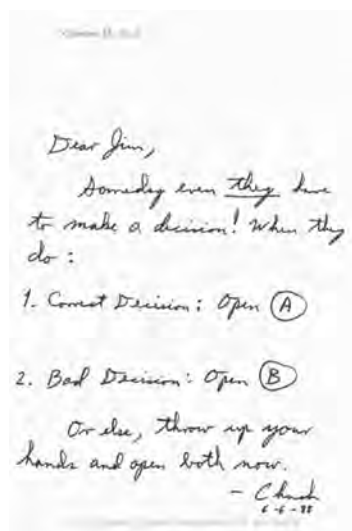 Dear Jim,
Someday even they have
to make a decision! When they
do :
1. Correct Decision : Open A
2. Bad Decision : Open B
Or else, throw up your
hands and open both now.
- Chuck
6-6-88